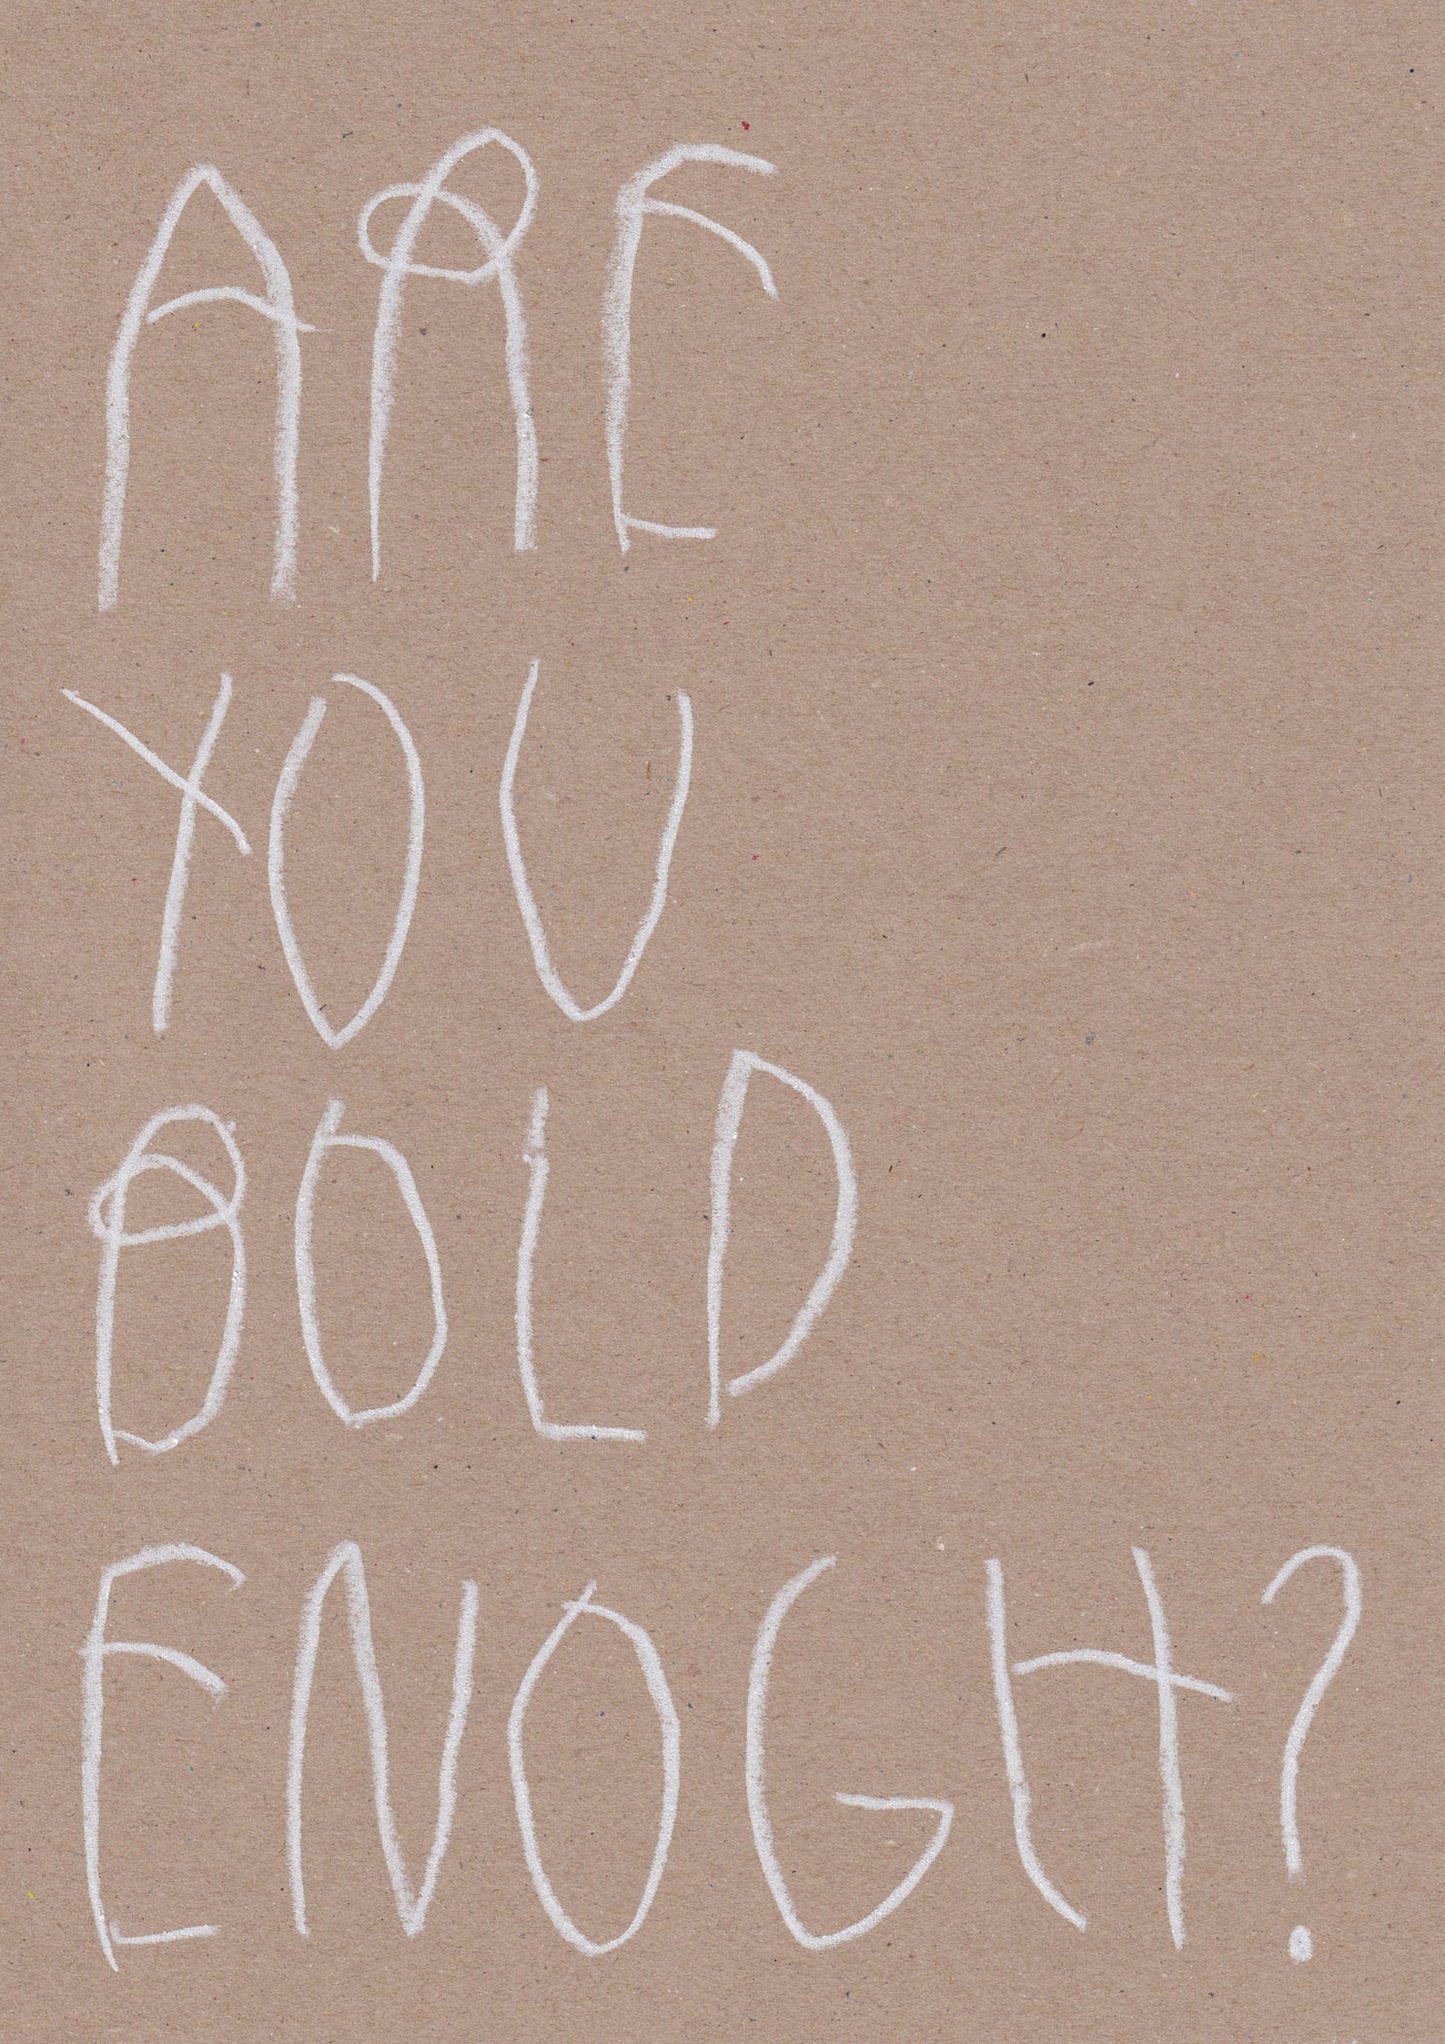 ARE
YOU
BOLD
ENOGH?